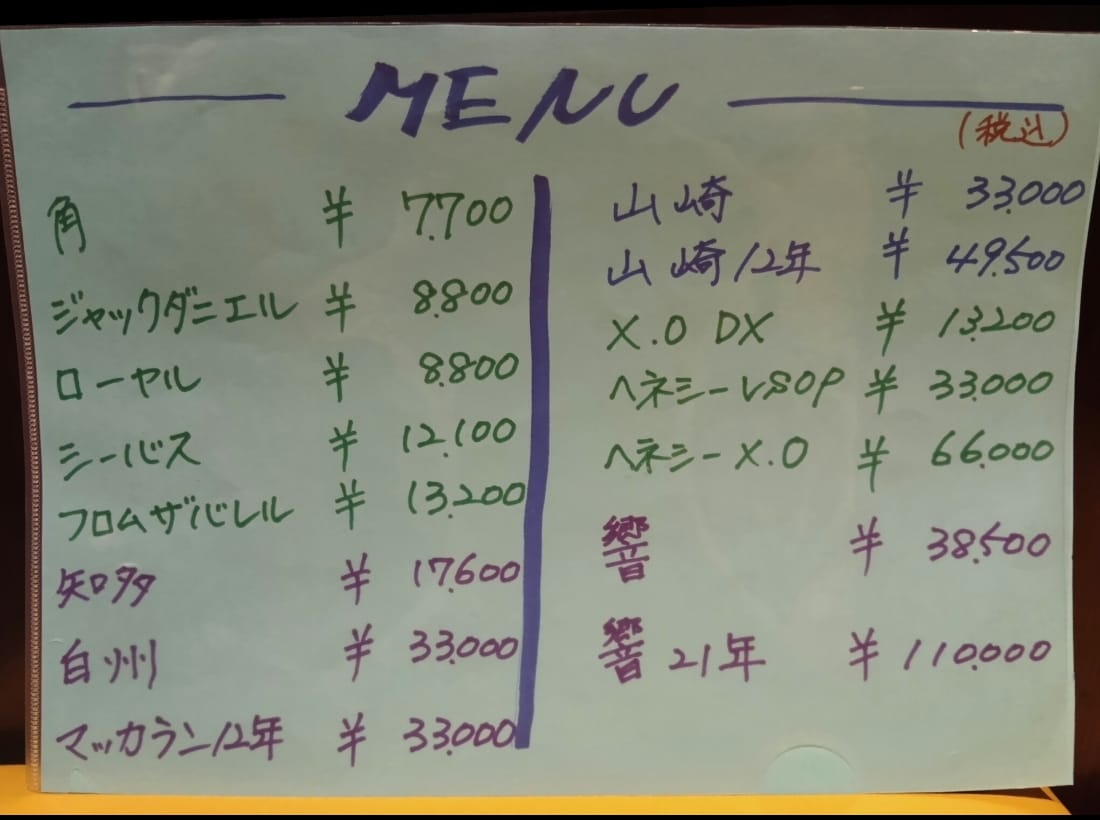 MENU
(税込)
角 ¥ 7.700
ジャックダニエル ¥ 8.800
ローヤル ¥ 8.800
シーバス ¥ 12.100
フロムザバレル ¥ 13.200
知多 ¥ 17.600
白州 ¥ 33.000
マッカラン12年 ¥ 33.000
山崎 ¥ 33.000
山崎12年 ¥ 49.500
X.O DX ¥ 13.200
ヘネシーVSOP ¥ 33.000
ヘネシーX.O ¥ 66.000
響 ¥ 38.500
響 21年 ¥ 110.000